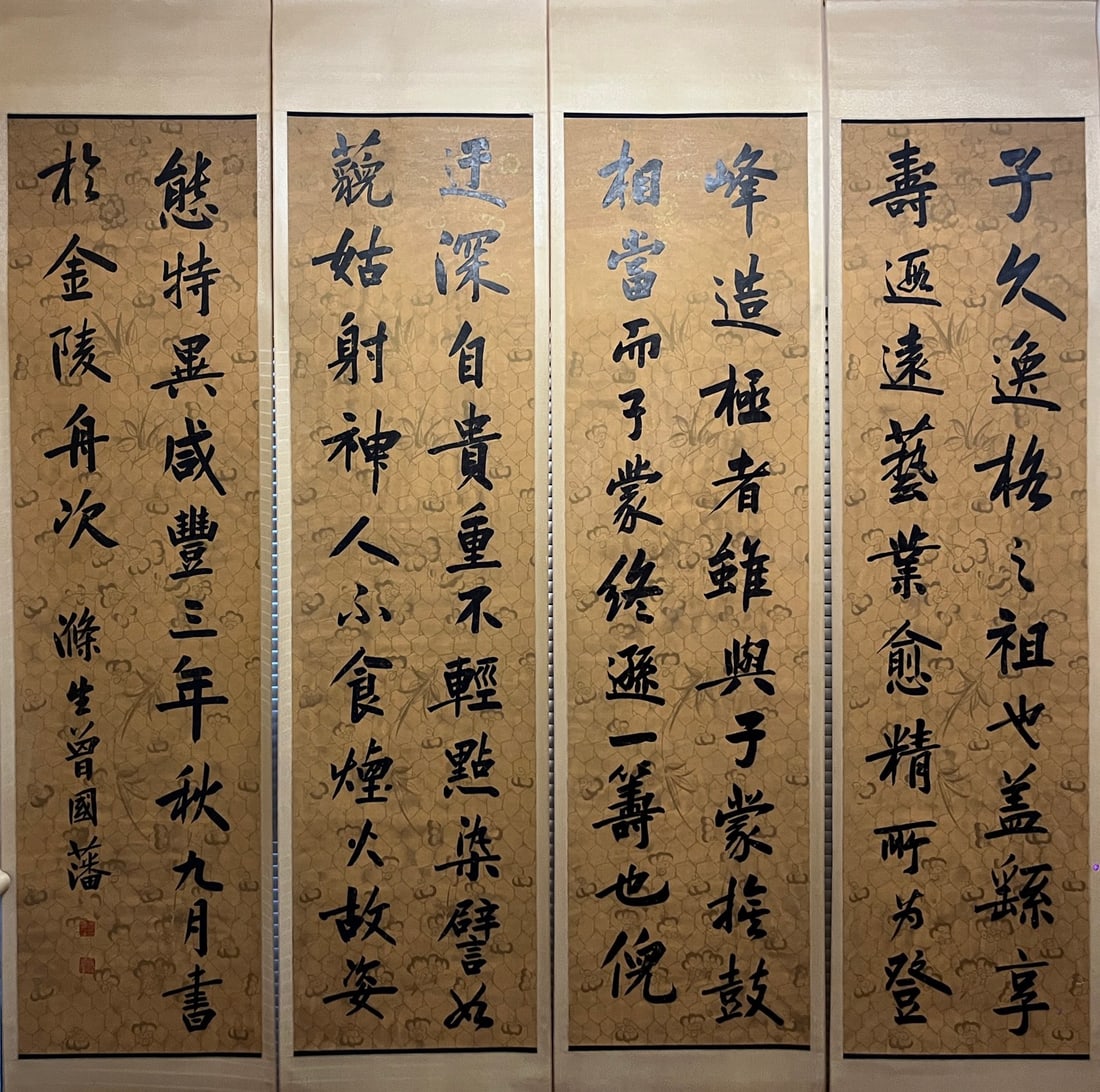 子久逸格之祖也盖繇享
壽遐遠藝業愈精所為登
峰造極者雖與子蒙旗鼓
相當而子蒙終遜一籌也倪
迂深自貴重不輕點染譬如
藐姑射神人不食煙火故姿
態特異咸豐三年秋九月書
於金陵舟次
滌生曾國藩